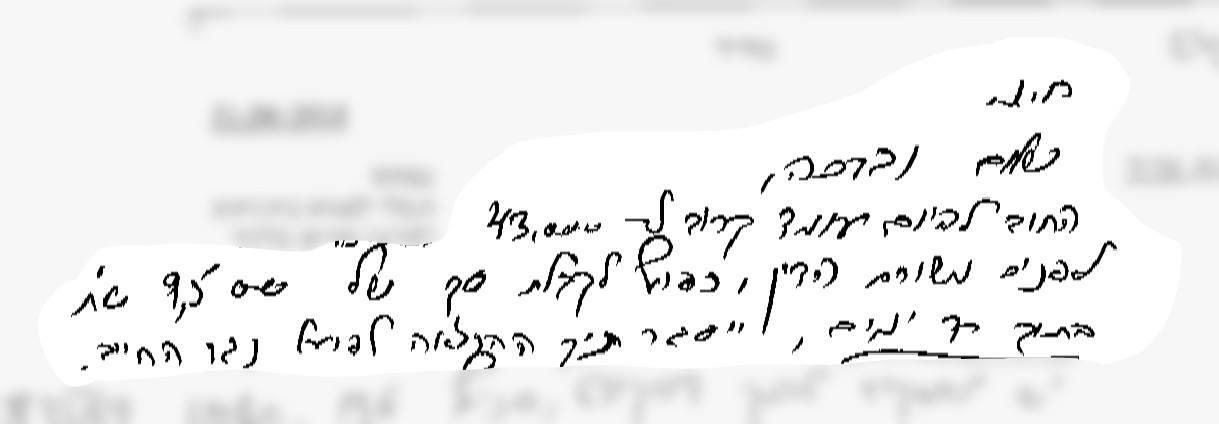 חיה
שלום וברכה,
החוב להיום עומד קרוב ל- 43,000
לפנים משורת הדין, בכפוף לקבלת סך של 9,500 ש"ח
בתוך 7 ימים, ייסגר תיק ההוצאה לפועל נגד החייב.